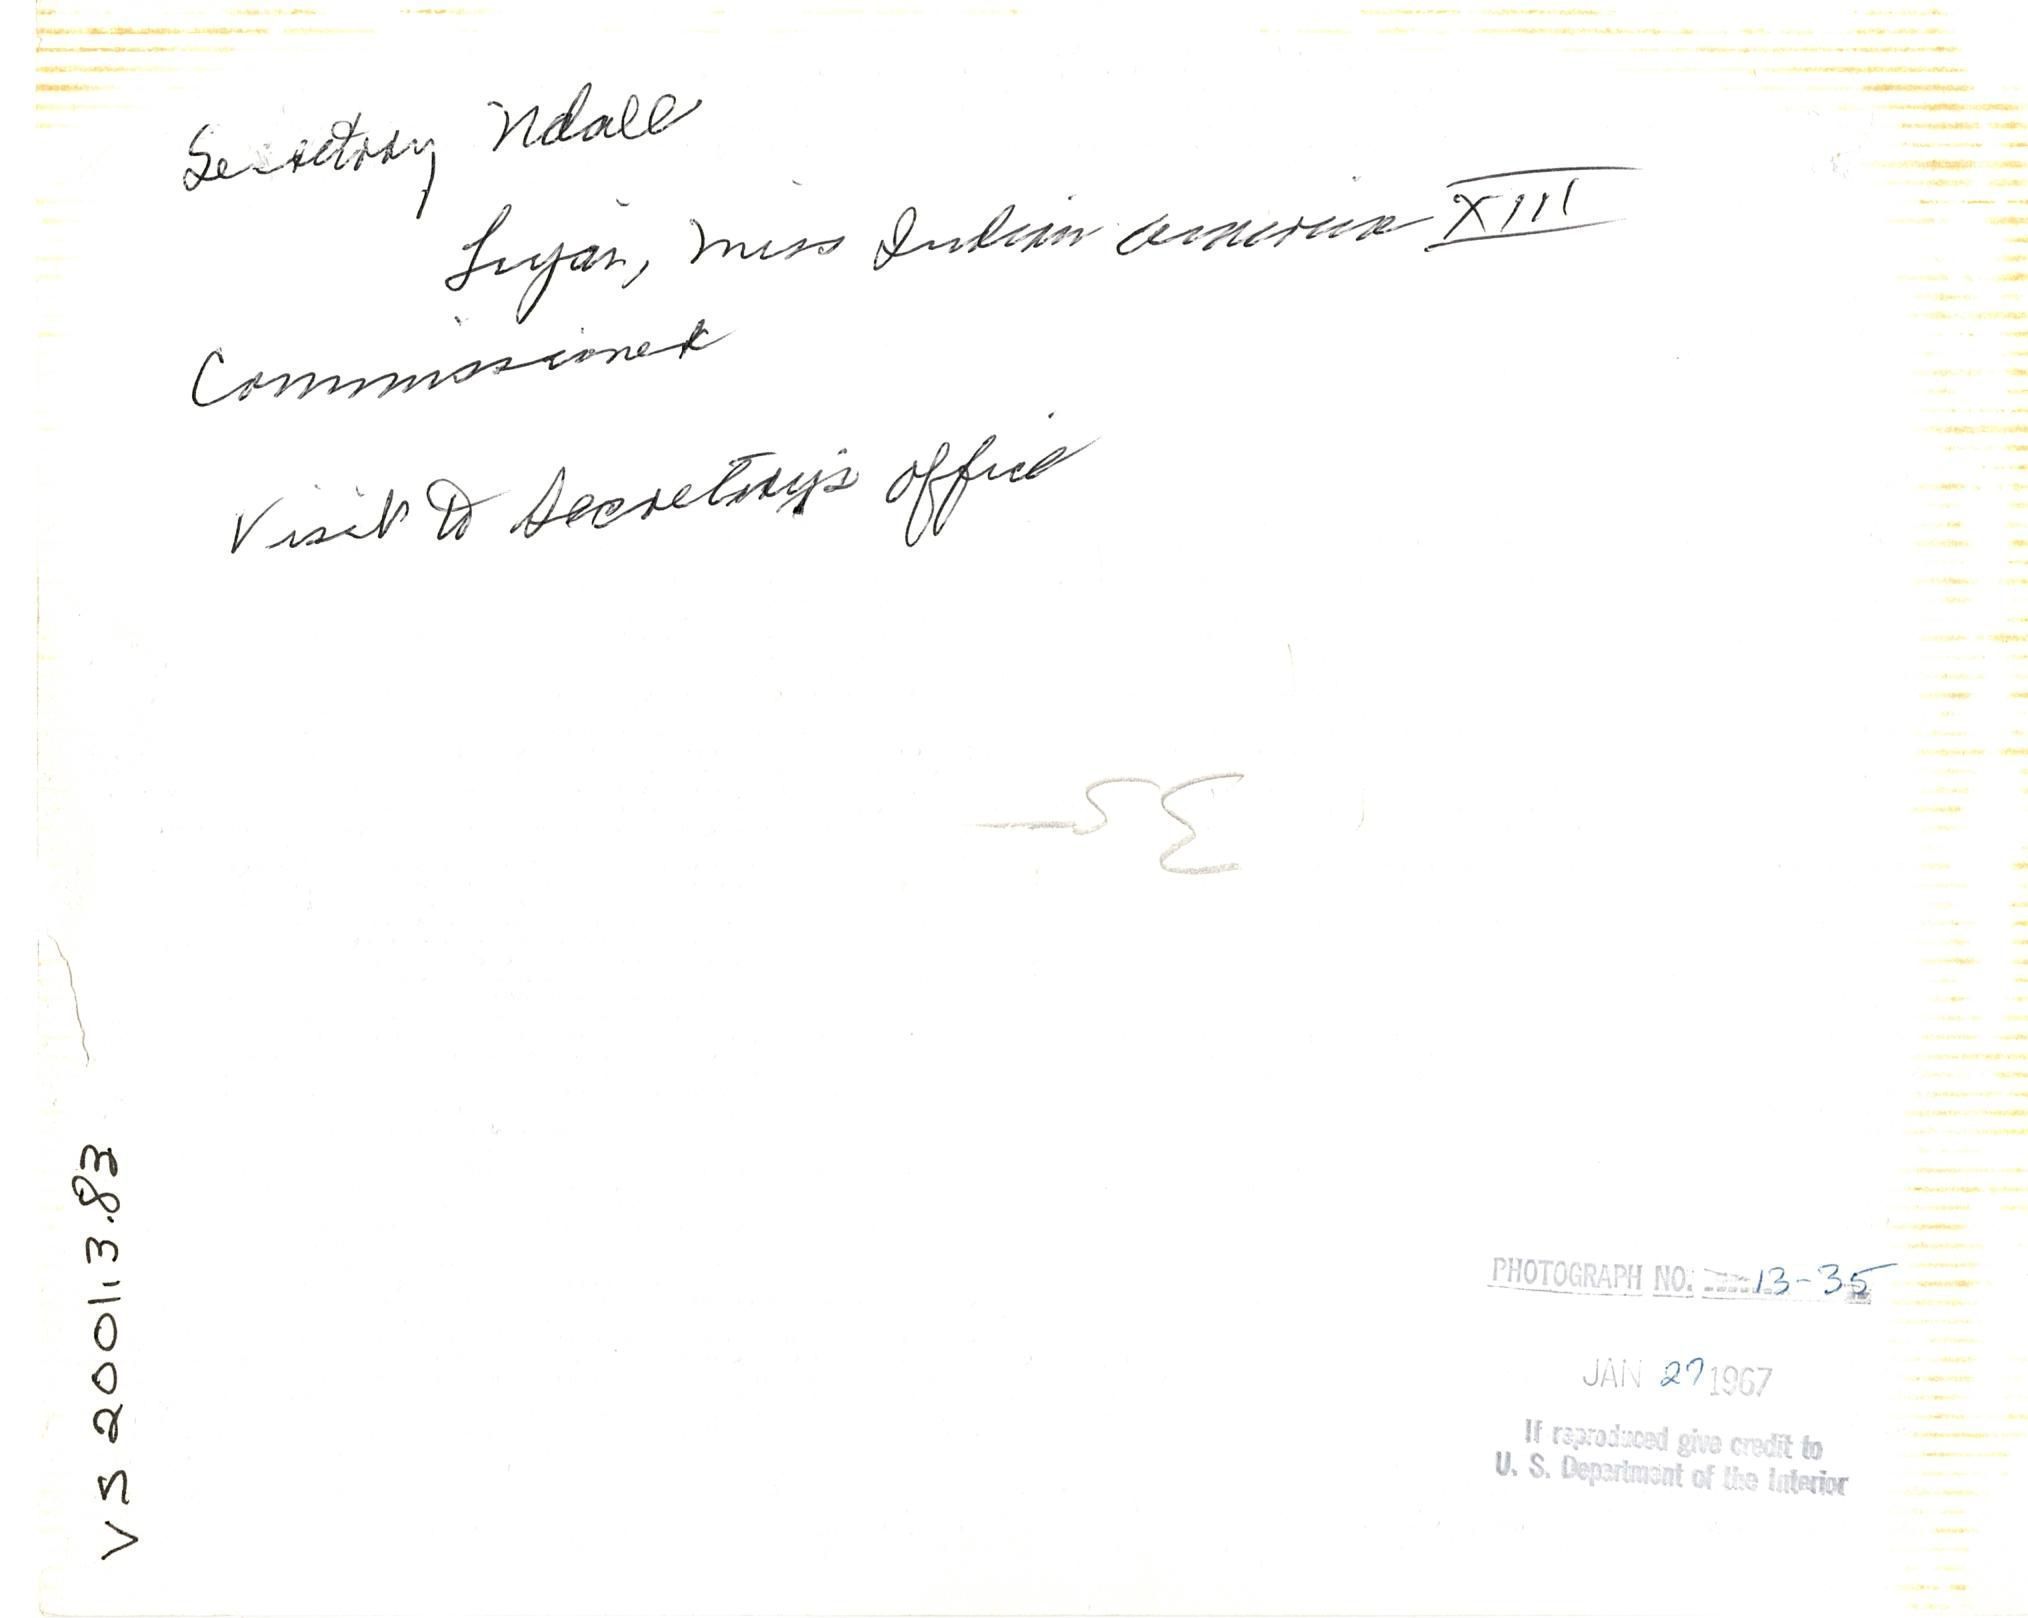 Secretary Udall
Lujan, Miss Indian America XIII
Commissioner
Visit to Secretary's office
VS 200113.83
PHOTOGRAPH NO. 13-35
JAN 27 1967
If reproduced give credit to
U. S. Department of the Interior